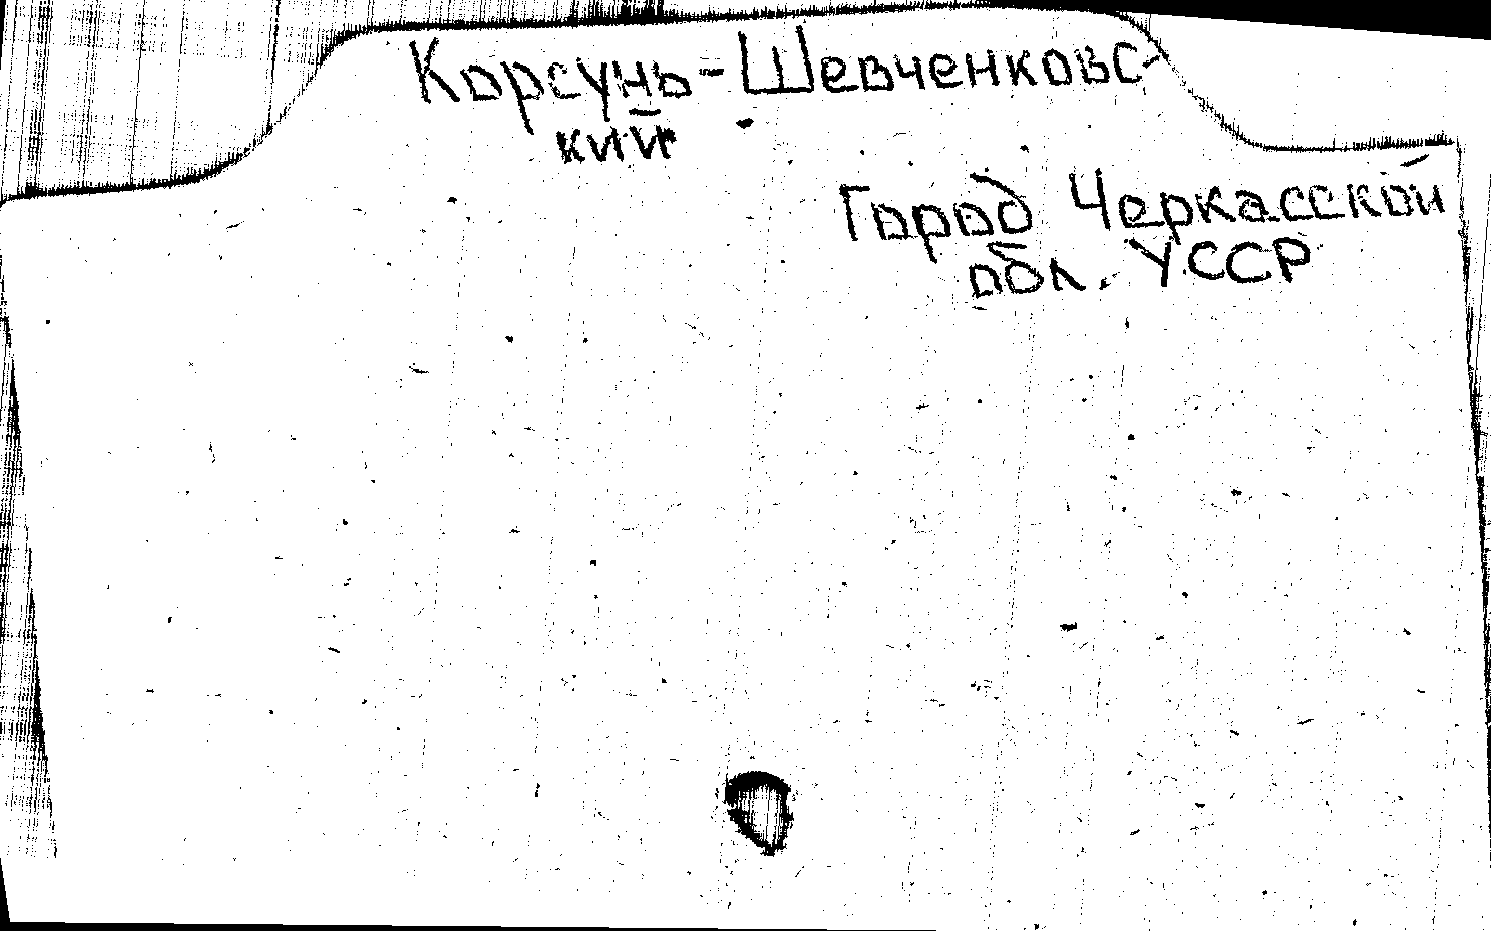 Корсунь-Шевченковс-
кий
Город Черкасской
обл. УССР